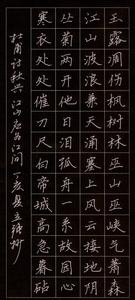 玉露凋伤枫树林巫山巫峡气萧森
江山波浪兼天涌塞上风云接地阴
丛菊两开他日泪孤舟一系故园心
寒衣处处催刀尺白帝城高急暮砧
杜甫诗秋兴 江山应为江间 丁亥夏